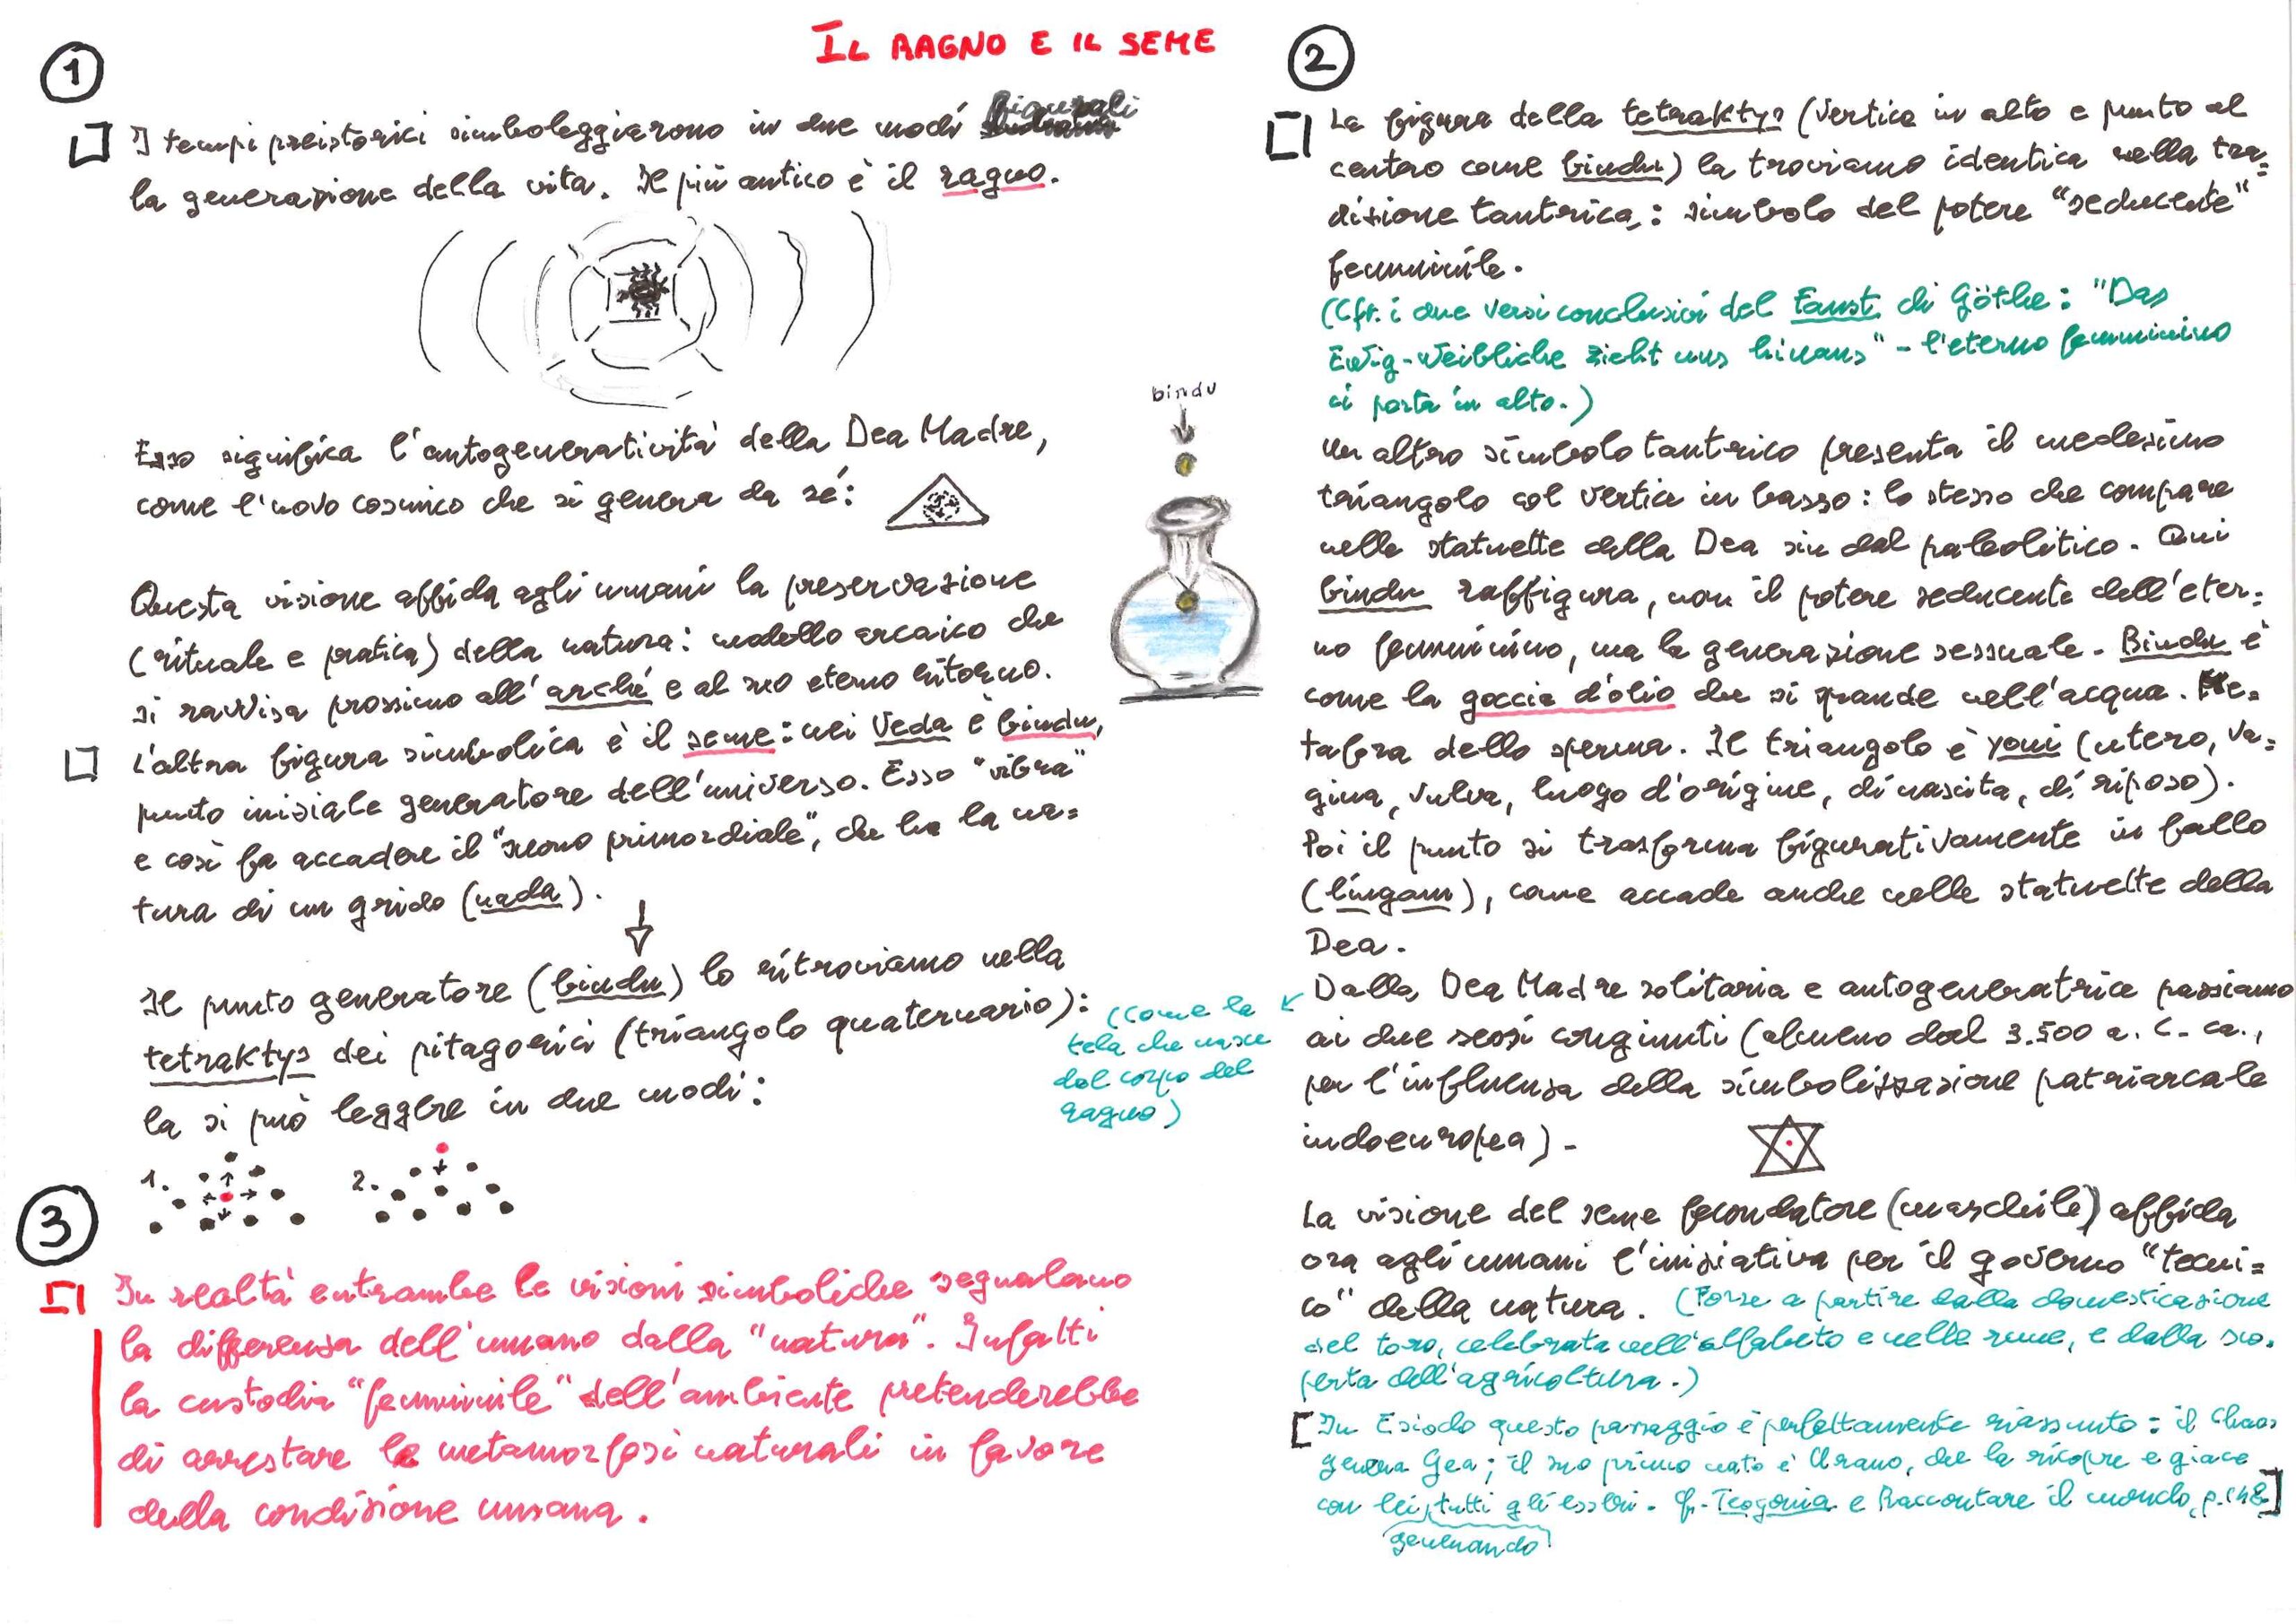 IL RAGNO E IL SEME
1
I tempi preistorici simboleggiarono in due modi figurali
la generazione della vita. Il più antico è il ragno.
Esso significa l'autogeneratività della Dea Madre,
come l'uovo cosmico che si genera da sé:
Questa visione affida agli umani la preservazione
(rituale e pratica) della natura: modello arcaico che
si ravvisa prossimo all'arché e al suo eterno ritorno.
L'altra figura simbolica è il seme: nei Veda è bindu,
punto iniziale generatore dell'universo. Esso "vibra"
e così fa accadere il "suono primordiale", che ha la na=
tura di un grido (nada).
Il punto generatore (bindu) lo ritroviamo nella
tetraktys dei pitagorici (triangolo quaternario):
la si può leggere in due modi:
1.
2.
(come la
tela che nasce
dal corpo del
ragno)
bindu
2
La figura della tetraktys (vertice in alto e punto al
centro come bindu) la troviamo identica nella tra=
dizione tantrica: simbolo del potere "seducente"
femminile.
(Cfr. i due versi conclusivi del Faust di Göthe: "Das
Ewig-Weibliche zieht uns hinans" - l'eterno femminino
ci porta in alto.)
Un altro simbolo tantrico presenta il medesimo
triangolo col vertice in basso: lo stesso che compare
nelle statuette della Dea sin dal paleolitico. Qui
bindu raffigura, non il potere seducente dell'eter=
no femminino, ma la generazione sessuale. Bindu è
come la goccia d'olio che si spande nell'acqua. Me=
tafora dello sperma. Il triangolo è yoni (utero, va=
gina, vulva, luogo d'origine, di nascita, di riposo).
Poi il punto si trasforma figurativamente in fallo
(lingam), come accade anche nelle statuette della
Dea.
Dalla Dea Madre solitaria e autogeneratrice passiamo
ai due sessi congiunti (almeno dal 3.500 a. C. ca.,
per l'influenza della simbolizzazione patriarcale
indoeuropea).
La visione del seme fecondatore (maschile) affida
ora agli umani l'iniziativa per il governo "tecni=
co" della natura. (Forse a partire dalla domesticazione
del toro, celebrata nell'alfabeto e nelle rune, e dalla sco=
perta dell'agricoltura.)
[In Esiodo questo passaggio è perfettamente riassunto: il Chaos
genera Gea; il suo primo nato è Urano, che la ricopre e giace
con lei, tutti gli esseri. Cfr. Teogonia e Raccontare il mondo, p. 148]
generando
3
In realtà entrambe le visioni simboliche segnalano
la differenza dell'umano dalla "natura". Infatti
la custodia "femminile" dell'ambiente pretenderebbe
di arrestare le metamorfosi naturali in favore
della condizione umana.